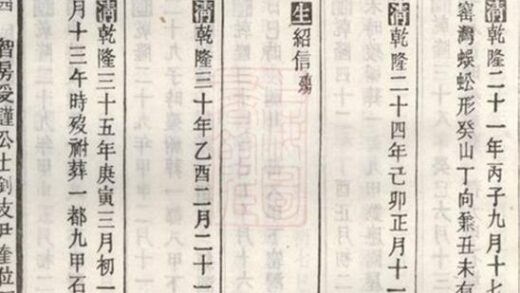 清乾隆二十一年丙子九月十七
窰灣蜈蚣形癸山丁向兼丑未有
清乾隆二十四年己卯正月十一
生紹信殤
清乾隆三十年乙酉二月二十一
清乾隆三十五年庚寅三月初一
月十三午時歿祔葬一都九甲石
四 智房受謹公士